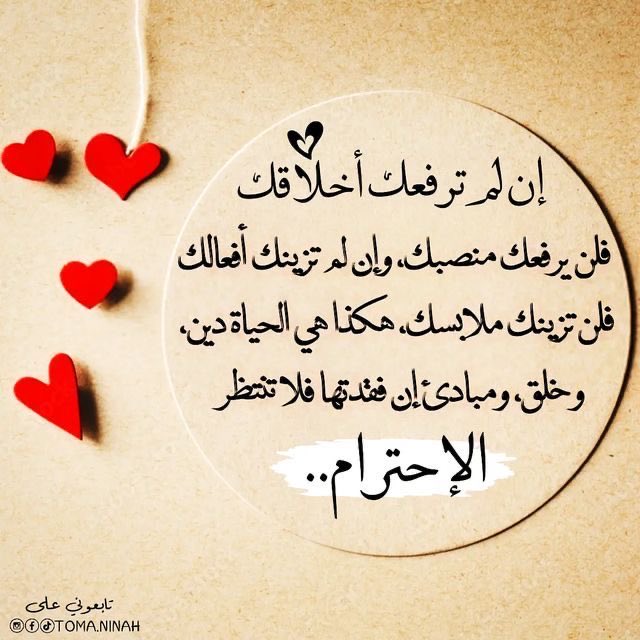 إن لم ترفعك أخلاقك
فلن يرفعك منصبك، وإن لم تزينك أفعالك
فلن تزينك ملابسك، هكذا هي الحياة دين،
وخلق، ومبادئ إن فقدتها فلا تنتظر
الإحترام..
تابعوني على
TOMA.NINAH